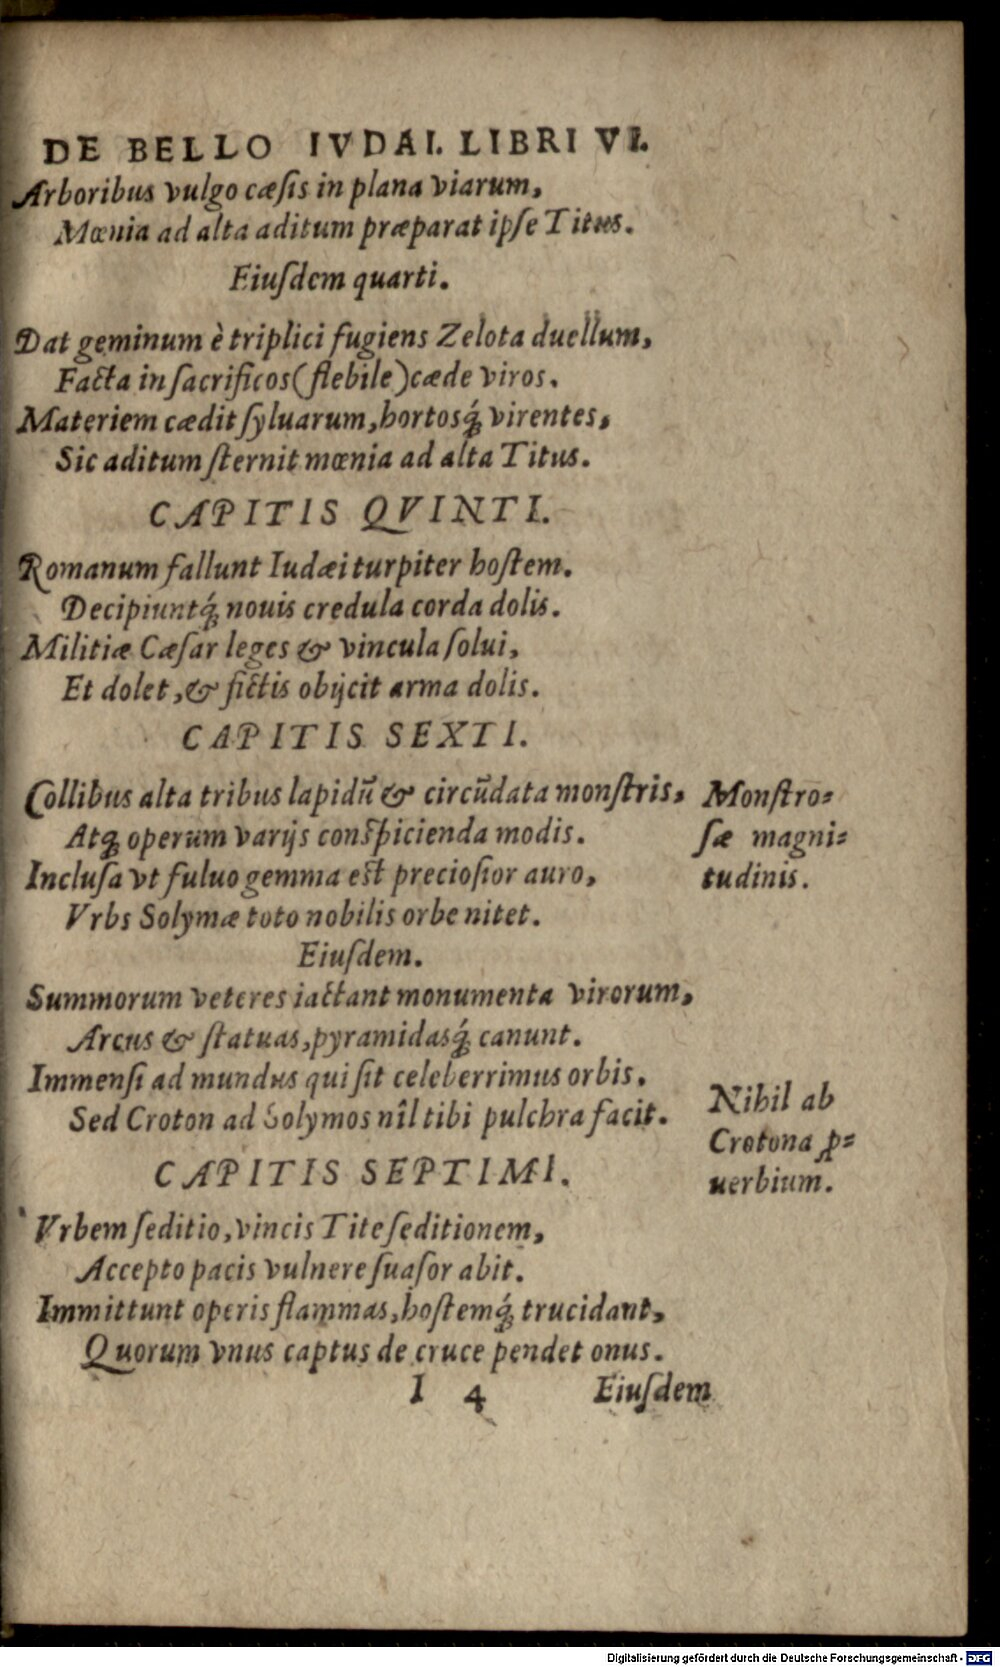 DE BELLO IVDAI. LIBRI VI.
Arboribus vulgo cæsis in plana viarum,
Mœnia ad alta aditum præparat ipse Titus.
Eiusdem quarti.
Dat geminum è triplici fugiens Zelota duellum,
Facta in sacrificos (flebile) cæde viros.
Materiem cædit syluarum, hortosq́; virentes,
Sic aditum sternit mœnia ad alta Titus.
CAPITIS QVINTI.
Romanum fallunt Iudæi turpiter hostem.
Decipiuntq́; nouis credula corda dolis.
Militiæ Cæsar leges & vincula solui,
Et dolet, & fictis obijcit arma dolis.
CAPITIS SEXTI.
Collibus alta tribus lapidũ & circũdata monstris,
Atq; operum varijs conspicienda modis.
Inclusa vt fuluo gemma est preciosior auro,
Vrbs Solymæ toto nobilis orbe nitet.
Monstro-
sæ magni-
tudinis.
Eiusdem.
Summorum veteres iactant monumenta virorum,
Arcus & statuas, pyramidasq́; canunt.
Immensi ad mundus qui sit celeberrimus orbis.
Sed Croton ad Solymos nîl tibi pulchra facit.
Nihil ab
Crotona ꝓ-
uerbium.
CAPITIS SEPTIMI.
Vrbem seditio, vincis Tite seditionem,
Accepto pacis vulnere suasor abit.
Immittunt operis flammas, hostemq́; trucidant,
Quorum vnus captus de cruce pendet onus.
I 4 Eiusdem
Digitalisierung gefördert durch die Deutsche Forschungsgemeinschaft - DFG